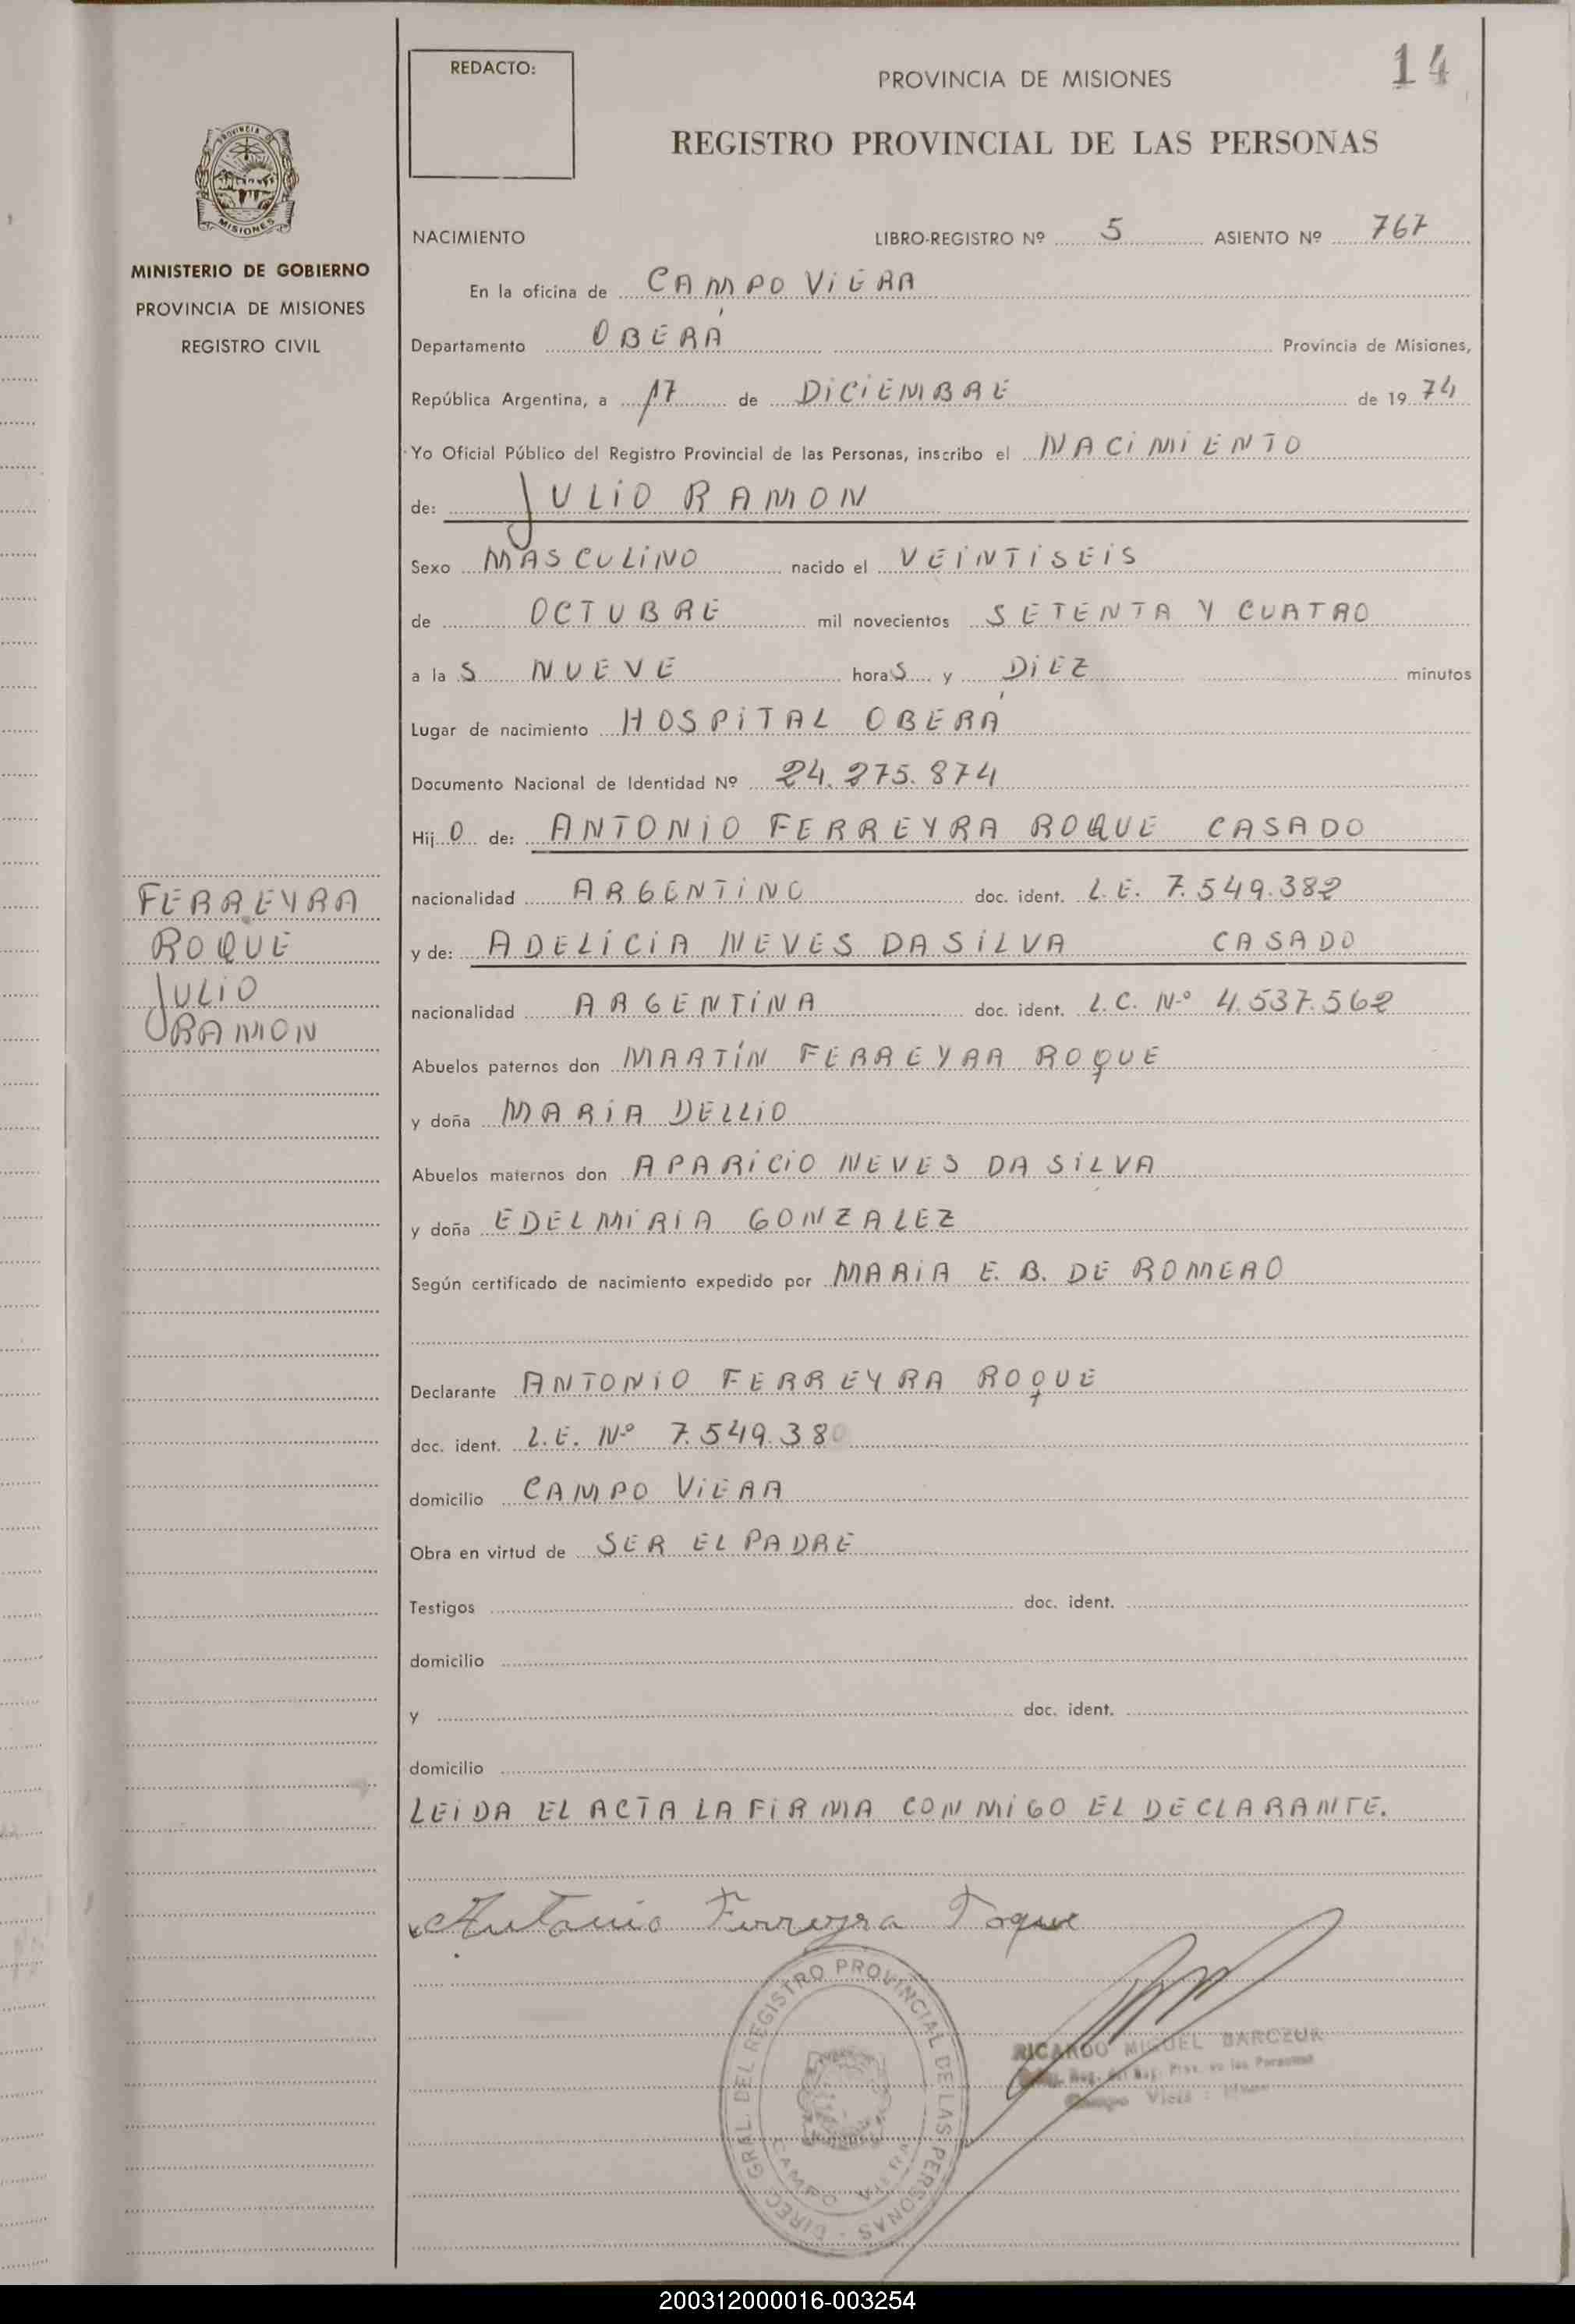 REDACTO:
PROVINCIA DE MISIONES
14
REGISTRO PROVINCIAL DE LAS PERSONAS
PROVINCIA DE
MISIONES
MINISTERIO DE GOBIERNO
PROVINCIA DE MISIONES
REGISTRO CIVIL
NACIMIENTO LIBRO-REGISTRO Nº 5 ASIENTO Nº 767
En la oficina de CAMPO VIERA
Departamento OBERÁ Provincia de Misiones,
República Argentina, a 17 de DICIEMBRE de 1974
Yo Oficial Público del Registro Provincial de las Personas, inscribo el NACIMIENTO
de: JULIO RAMON
Sexo MASCULINO nacido el VEINTISEIS
de OCTUBRE mil novecientos SETENTA Y CUATRO
a las NUEVE horas y DIEZ minutos
Lugar de nacimiento HOSPITAL OBERÁ
Documento Nacional de Identidad Nº 24.275.874
Hijo de: ANTONIO FERREYRA ROQUE CASADO
nacionalidad ARGENTINO doc. ident. L.E. 7.549.382
y de: ADELICIA NEVES DA SILVA CASADO
nacionalidad ARGENTINA doc. ident. L.C. Nº 4.537.562
FERREYRA
ROQUE
JULIO
RAMON
Abuelos paternos don MARTÍN FERREYRA ROQUE
y doña MARIA DELLIO
Abuelos maternos don APARICIO NEVES DA SILVA
y doña EDELMIRIA GONZALEZ
Según certificado de nacimiento expedido por MARIA E. B. DE ROMERO
Declarante ANTONIO FERREYRA ROQUE
doc. ident. L.E. Nº 7.549.38
domicilio CAMPO VIERA
Obra en virtud de SER EL PADRE
Testigos doc. ident.
domicilio
y doc. ident.
domicilio
LEIDA EL ACTA LA FIRMA CONMIGO EL DECLARANTE.
Antonio Ferreyra Roque
DIREC. GRAL. DEL REGISTRO PROVINCIAL DE LAS PERSONAS -
CAMPO VIERA
RICARDO MIGUEL BARCZUK
Prov. de las Personas
Campo Viera
200312000016-003254